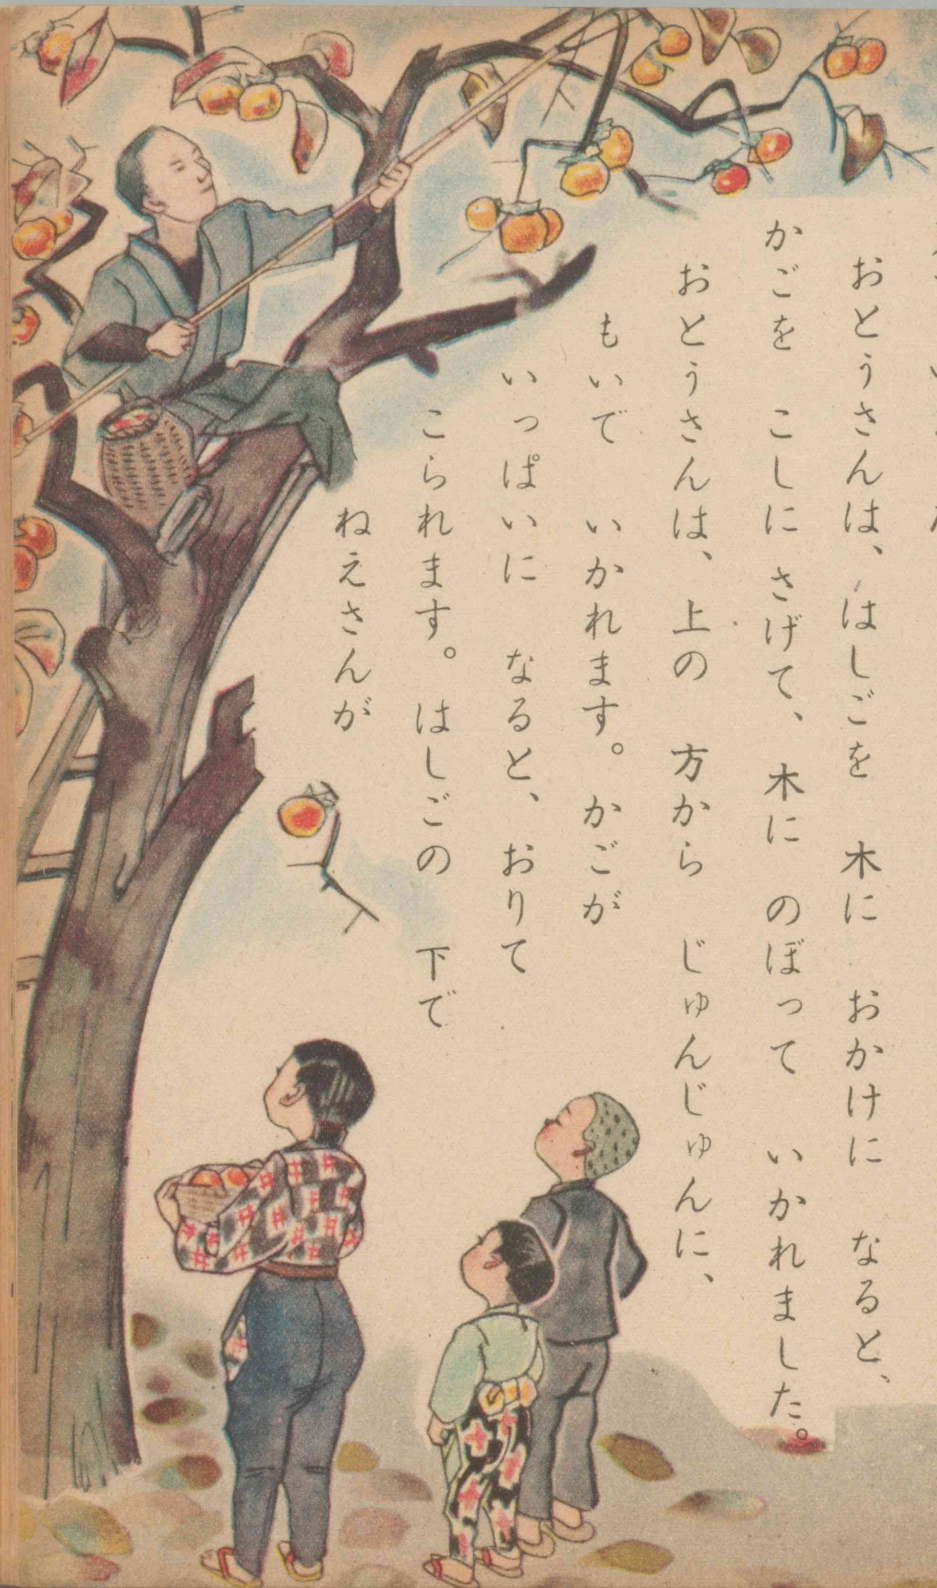 おとうさんは、はしごを　木に　おかけに　なると、
かごを　こしに　さげて、木に　のぼって　いかれました。
おとうさんは、上の　方から　じゅんじゅんに、
もいで　いかれます。かごが
いっぱいに　なると、おりて
こられます。はしごの　下で
ねえさんが